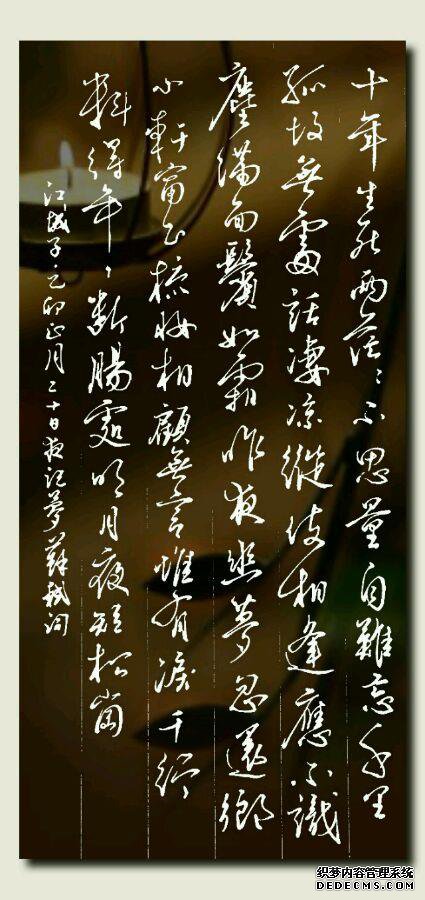 十年生死兩茫〻不思量自難忘千里
孤墳無處話凄涼縱使相逢應不識
塵滿面鬢如霜昨夜幽夢忽還鄉
小軒窗正梳妝相顧無言惟有淚千行
料得年〻斷腸處明月夜短松崗
江城子乙卯正月二十日夜記夢蘇軾詞
织梦内容管理系统
DEDECMS.COM